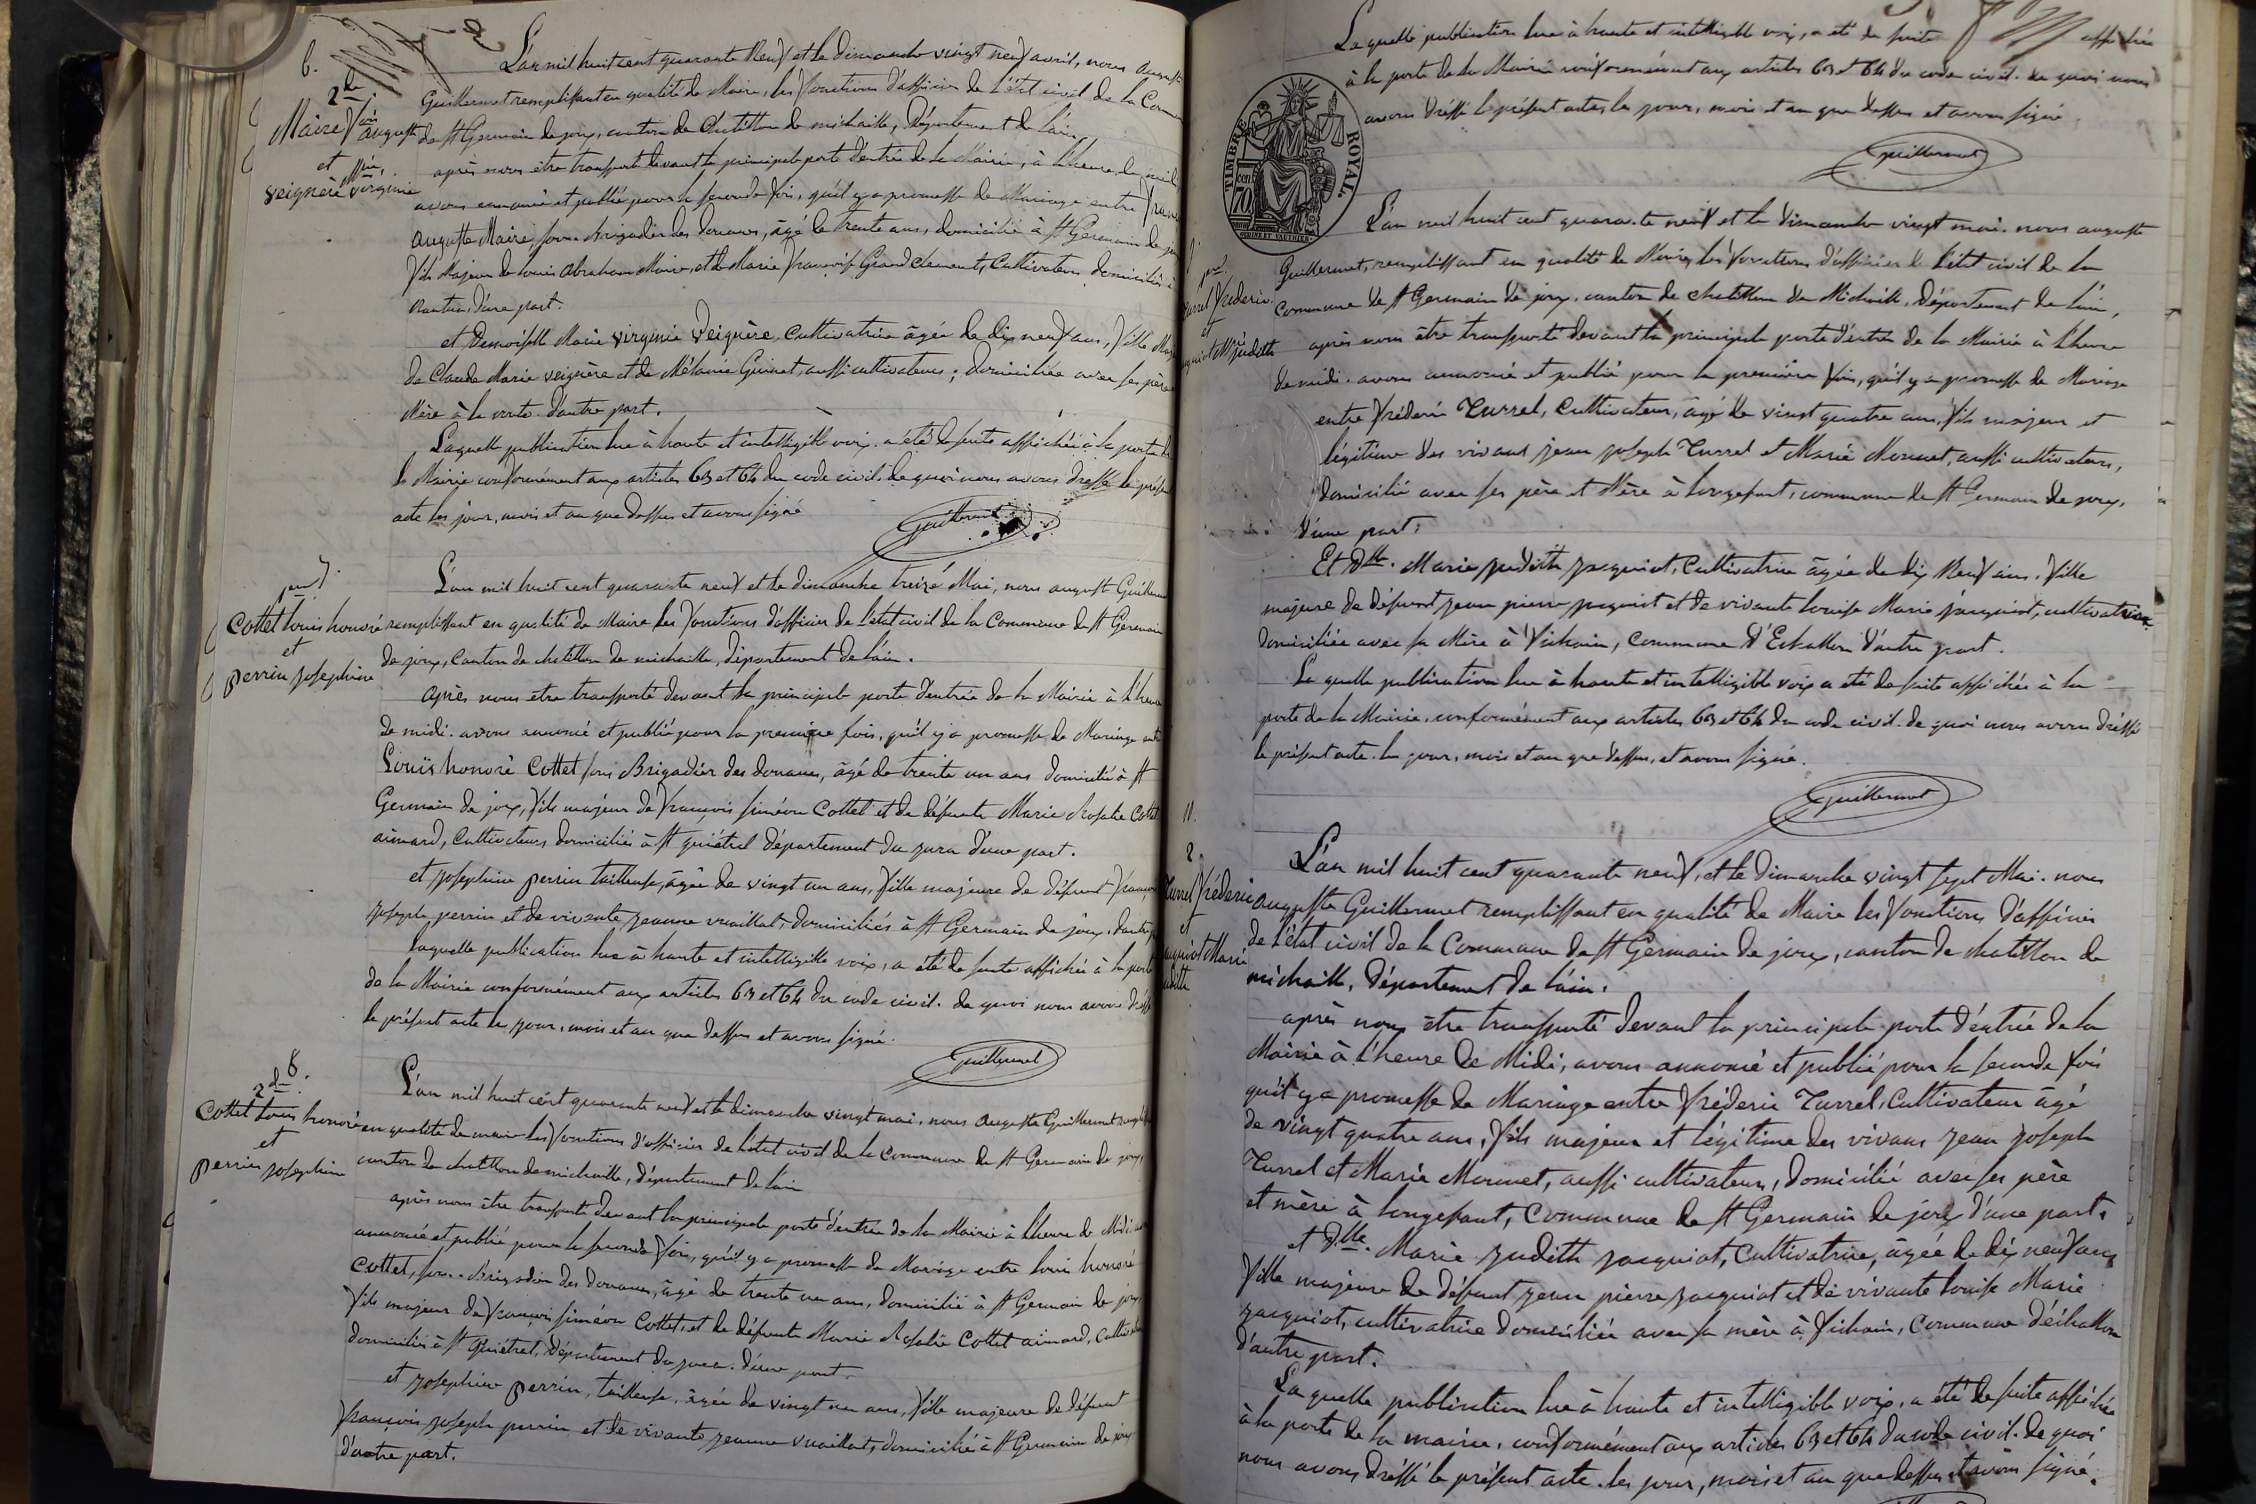 6.
2de
Maire fois auguste
et Mie
Veignère virginie
L'an mil huit cent quarante Neuf et le dimanche vingt neuf avril, nous auguste
Guillermet remplissant en qualité de Maire, les fonctions d'officier de l'état civil de la Comm
de St Germain de joux, canton de Chatillon de michaille, Département de l'ain
après nous être transporté devant la principale porte d'entrée de la Mairie, à l'heure de midi
avons annoncé et publié pour la seconde fois, qu'il y a promesse de Mariage entre
auguste Maire, sous brigadier des douanes, âgé de trente ans, domicilié à St Germain de joux
fils Majeur de Louis Abraham Maire, et de Marie françoise Grand Clement, Cultivateurs domiciliés à
d'une part.
et Demoiselle Marie virginie Veignère, cultivatrice âgée de dix neuf ans, fille
de Claude Marie veignère et de Mélanie Guinet, aussi cultivateurs, domiciliée avec ses père
Mère à la d'autre part.
Laquelle publication lue à haute et intelligible voix a été de suite affichée à la porte de
la Mairie conformément aux articles 63 et 64 du code civil. de quoi nous avons dressé le présent
acte les jour, mois et an que dessus et avons signé
Guillermet
7.
1ere
Cottet Louis honoré
et
perrin josephine
L'an mil huit cent quarante neuf et le dimanche treize Mai, nous auguste Guillermet
remplissant en qualité de Maire les fonctions d'officier de l'état civil de la Commune de St Germain
de joux, Canton de chatillon de michaille, département de l'ain.
après nous etre transporté devant la principale porte d'entrée de la Mairie à l'heure
de midi. avons annoncé et publié pour la première fois, qu'il y a promesse de Mariage entre
Louis honoré Cottet sous Brigadier des douanes, âgé de trente un ans domicilié à St
Germain de joux, fils majeur de françois siméon Cottet et de défunte Marie Rosalie Cottet
aimard, Cultivateurs domiciliés à St département du jura d'une part.
et josephine perrin tailleuse, âgée de vingt un ans, fille majeure de défunt françois
joseph perrin et de vivante jeanne vuaillat, domiciliés à St Germain de joux, d'autre part
laquelle publication lue à haute et intelligible voix, a été de suite affichée à la porte
de la Mairie conformément aux articles 63 et 64 du code civil. de quoi nous avons dressé
le présent acte les jour, mois et an que dessus et avons signé.
Guillermet
8.
2de
Cottet Louis honoré
et
perrin josephine
L'an mil huit cent quarante neuf et le dimanche vingt mai, nous auguste Guillermet
en qualité de maire les fonctions d'officier de l'état civil de la Commune de St Germain de joux,
canton de chatillon de michaille, département de l'ain
après nous être transporté devant la principale porte d'entrée de la Mairie à l'heure de Midi
annoncé et publié pour la seconde fois, qu'il y a promesse de Mariage entre Louis honoré
Cottet, sous-Brigadier des douanes, âgé de trente un ans, domicilié à St Germain de joux
fils majeur de françois siméon Cottet, et de défunte Marie Rosalie Cottet aimard,
domiciliés à St département du jura. d'une part.
et josephine perrin, tailleuse, âgée de vingt un ans, fille majeure de défunt
françois joseph perrin et de vivante jeanne vuaillat, domiciliée à St Germain de joux
d'autre part.
Laquelle publication lue à haute et intelligible voix, a été de suite affichée
à la porte de la Mairie conformément aux articles 63 et 64 du code civil. de quoi nous
avons dressé le présent acte, les jour, mois et an que dessus et avons signé
Guillermet
TIMBRE ROYAL
70 cen
1re
Turrel frederic
et
Mie judith
L'an mil huit cent quarante neuf et le dimanche vingt mai. nous auguste
Guillermet, remplissant en qualité de Maire, les fonctions d'officier de l'état civil de la
Commune de St Germain de joux, canton de chatillon de Michaille, Département de l'ain,
après nous être transporté devant la principale porte d'entrée de la Mairie à l'heure
de midi. avons annoncé et publié pour la première fois, qu'il y a promesse de Mariage
entre fréderic Turrel, Cultivateur, âgé de vingt quatre ans, fils majeur et
légitime des vivans jean joseph Turrel et Marie Mermet, aussi cultivateurs,
domicilié avec ses père et Mère à Longefant, commune de St Germain de joux,
d'une part.
Et Dlle. Marie judith jacquiot, Cultivatrice âgée de dix Neuf ans, fille
majeure de défunt jean pierre jacquiot et de vivante Louise Marie jacquiot, cultivatrice
domiciliée avec sa Mère à commune d'Echallon d'autre part.
La quelle publication lue à haute et intelligible voix a été de suite affichée à la
porte de la Mairie, conformément aux articles 63 et 64 du code civil. de quoi nous avons dréssé
le présent acte les jour, mois et an que dessus, et avons signé.
Guillermet
2
Turrel fréderic
et
jacquiot Marie
judith
L'an mil huit cent quarante neuf, et le dimanche vingt sept Mai. nous
auguste Guillermet remplissant en qualité de Maire les fonctions d'officier
de l'état civil de la Commune de St Germain de joux, canton de chatillon de
michaille, département de l'ain.
après nous être transporté devant la principale porte d'entrée de la
Mairie à l'heure de Midi, avons annoncé et publié pour la seconde fois
qu'il y a promesse de Mariage entre fréderic Turrel, Cultivateur âgé
de vingt quatre ans, fils majeur et légitime des vivans jean joseph
Turrel et Marie Mermet, aussi cultivateurs, domicilié avec ses père
et mère à longefant, Commune de St Germain de joux d'une part.
et Dlle. Marie judith jacquiot, Cultivatrice, âgée de dix neuf ans
fille majeure de défunt jean pierre jacquiot et de vivante Louise Marie
jacquiot, cultivatrice domiciliée avec sa mère à Commune d'échallon
d'autre part.
La quelle publication lue à haute et intelligible voix, a été de suite affichée
à la porte de la mairie, conformément aux articles 63 et 64 du code civil. de quoi
nous avons dréssé le présent acte. les jour, mois et an que dessus et avons signé.